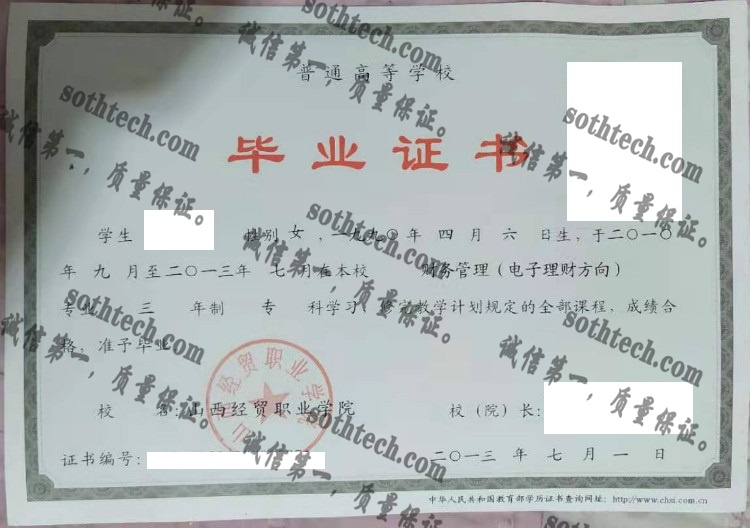 普通高等学校
毕业证书
学生 性别 女 ，一九九〇年 四 月 六 日生，于二〇一〇
年 九 月至二〇一三年 七 月在本校 财务管理（电子理财方向）
专业 三 年制 专 科学习，修完教学计划规定的全部课程，成绩合
格，准予毕业。
校 名：山西经贸职业学院 校（院）长：
证书编号： 二〇一三年 七 月 一 日
中华人民共和国教育部学历证书查询网址：http://www.chsi.com.cn
山西经贸职业学院
sothtech.com
诚信第一，质量保证。
sothtech.com
诚信第一，质量保证。
sothtech.com
诚信第一，质量保证。
sothtech.com
诚信第一，质量保证。
sothtech.com
诚信第一，质量保证。
sothtech.com
诚信第一，质量保证。
sothtech.com
诚信第一，质量保证。